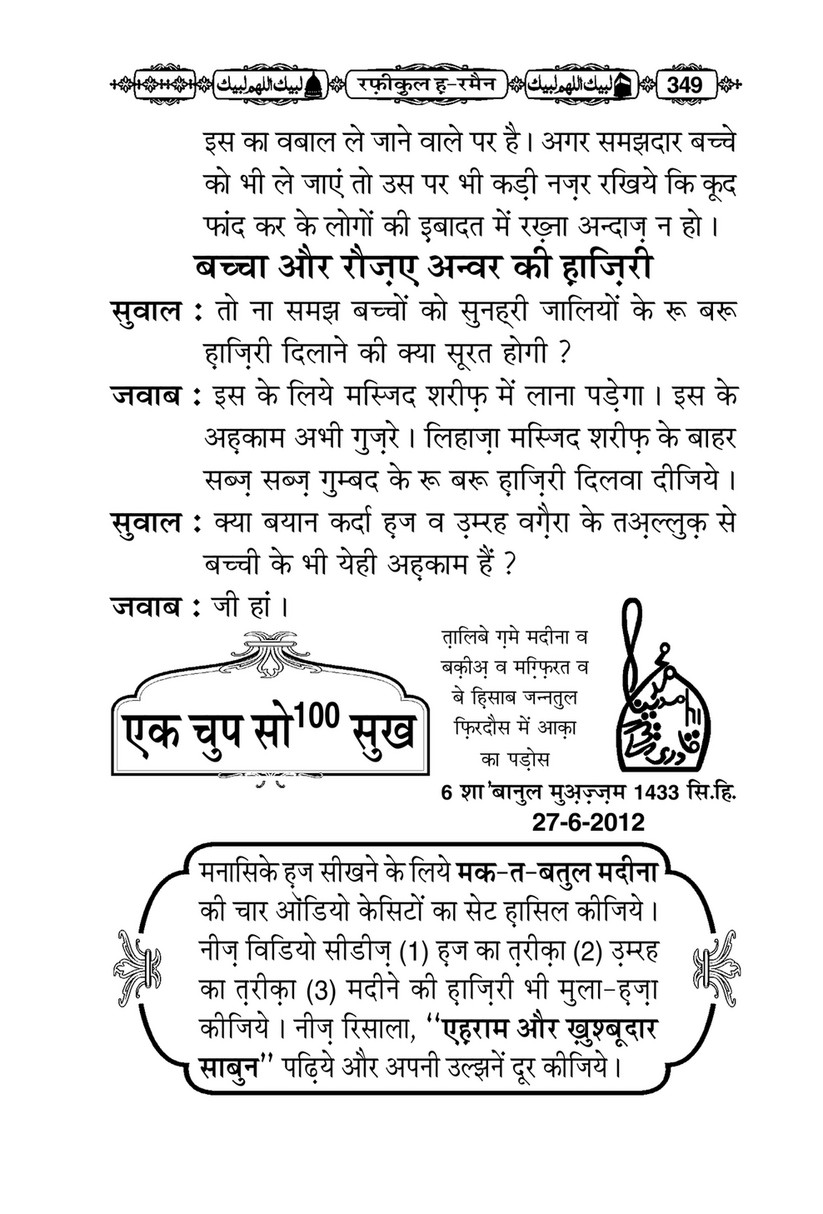 لبيك اللهم لبيك रफ़ीकुल ह-रमैन لبيك اللهم لبيك 349
इस का वबाल ले जाने वाले पर है। अगर समझदार बच्चे
को भी ले जाएं तो उस पर भी कड़ी नज़र रखिये कि कूद
फांद कर के लोगों की इ़बादत में रख़्ना अन्दाज़ न हो।
बच्चा और रौज़ए अन्वर की ह़ाज़िरी
सुवाल : तो ना समझ बच्चों को सुनहरी जालियों के रू बरू
ह़ाज़िरी दिलाने की क्या सूरत होगी ?
जवाब : इस के लिये मस्जिद शरीफ़ में लाना पड़ेगा। इस के
अह़काम अभी गुज़रे। लिहाज़ा मस्जिद शरीफ़ के बाहर
सब्ज़ सब्ज़ गुम्बद के रू बरू ह़ाज़िरी दिलवा दीजिये।
सुवाल : क्या बयान कर्दा ह़ज व उ़म्रह वग़ैरा के तअ़ल्लुक़ से
बच्ची के भी येही अह़काम हैं ?
जवाब : जी हां।
एक चुप सो100 सुख
त़ालिबे ग़मे मदीना व
बक़ीअ़ व मग़्फ़िरत व
बे ह़िसाब जन्नतुल
फ़िरदौस में आक़ा
का पड़ोस
6 शा'बानुल मुअ़ज़्ज़म 1433 सि.हि.
27-6-2012
मनासिके ह़ज सीखने के लिये मक-त-बतुल मदीना
की चार ऑडियो केसिटों का सेट ह़ासिल कीजिये।
नीज़ विडियो सीडीज़ (1) ह़ज का त़रीक़ा (2) उ़म्रह
का त़रीक़ा (3) मदीने की ह़ाज़िरी भी मुला-ह़ज़ा
कीजिये। नीज़ रिसाला, ‘‘एह़राम और ख़ुश्बूदार
साबुन’’ पढ़िये और अपनी उल्झनें दूर कीजिये।